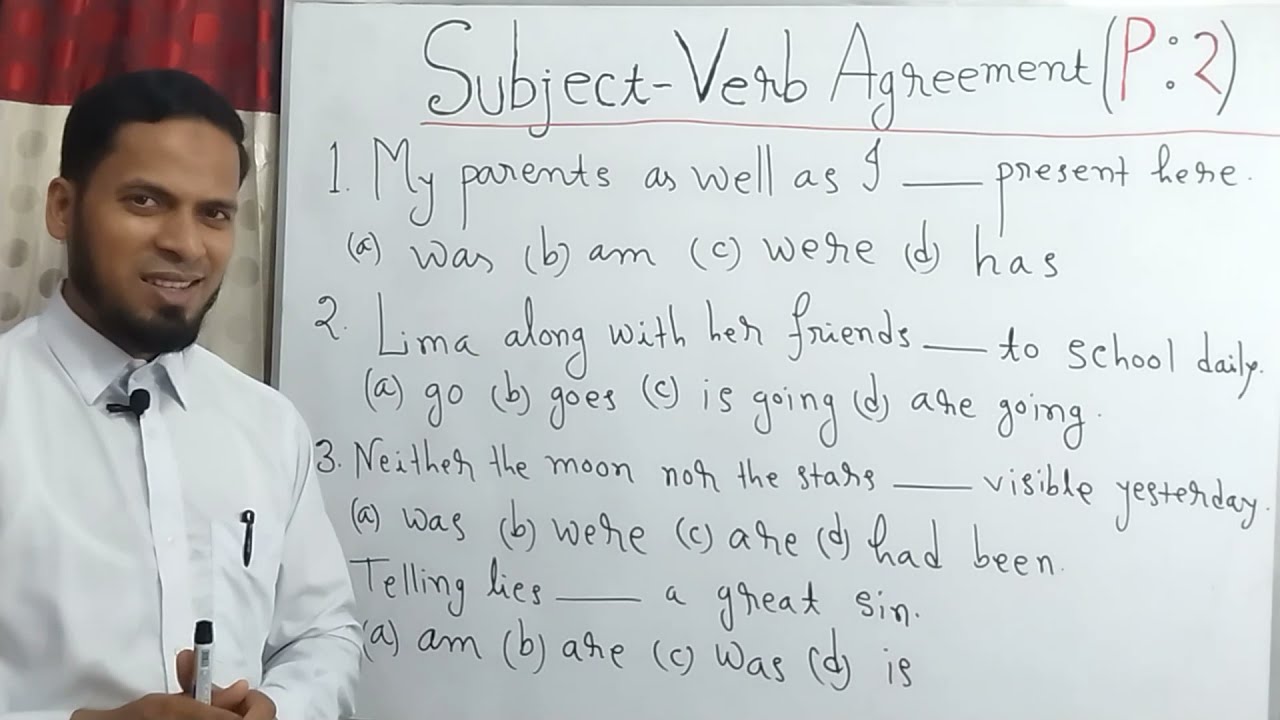 Subject-Verb Agreement (P:2)
1. My parents as well as I ___ present here.
(a) was (b) am (c) were (d) has
2. Lima along with her friends ___ to school daily.
(a) go (b) goes (c) is going (d) are going.
3. Neither the moon nor the stars ___ visible yesterday.
(a) was (b) were (c) are (d) had been.
Telling lies ___ a great sin.
(a) am (b) are (c) was (d) is